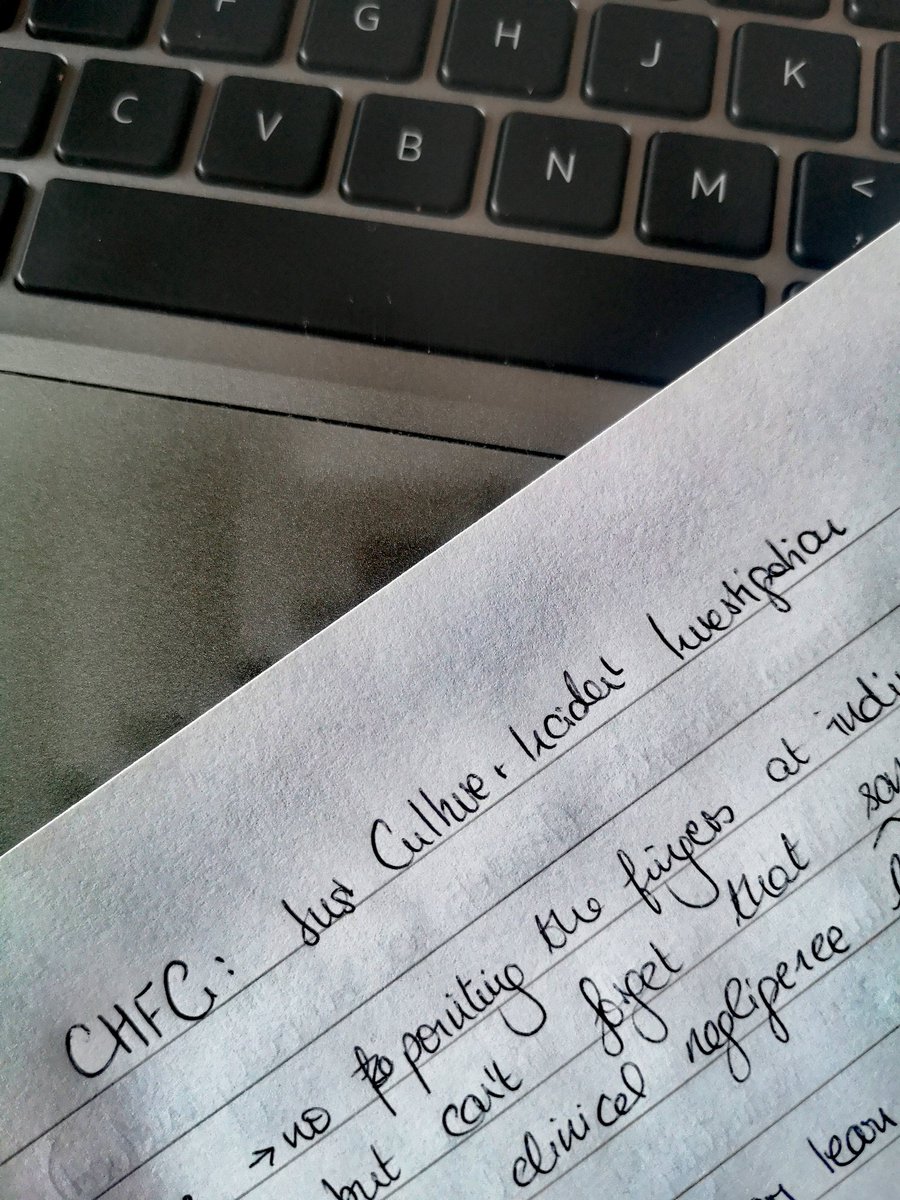 F G H J K
C V B N M <
,
CHFG: Just Culture + Incident Investigation
→ no pointing the fingers at indiv
but can't forget that som
clinical negligence
learn